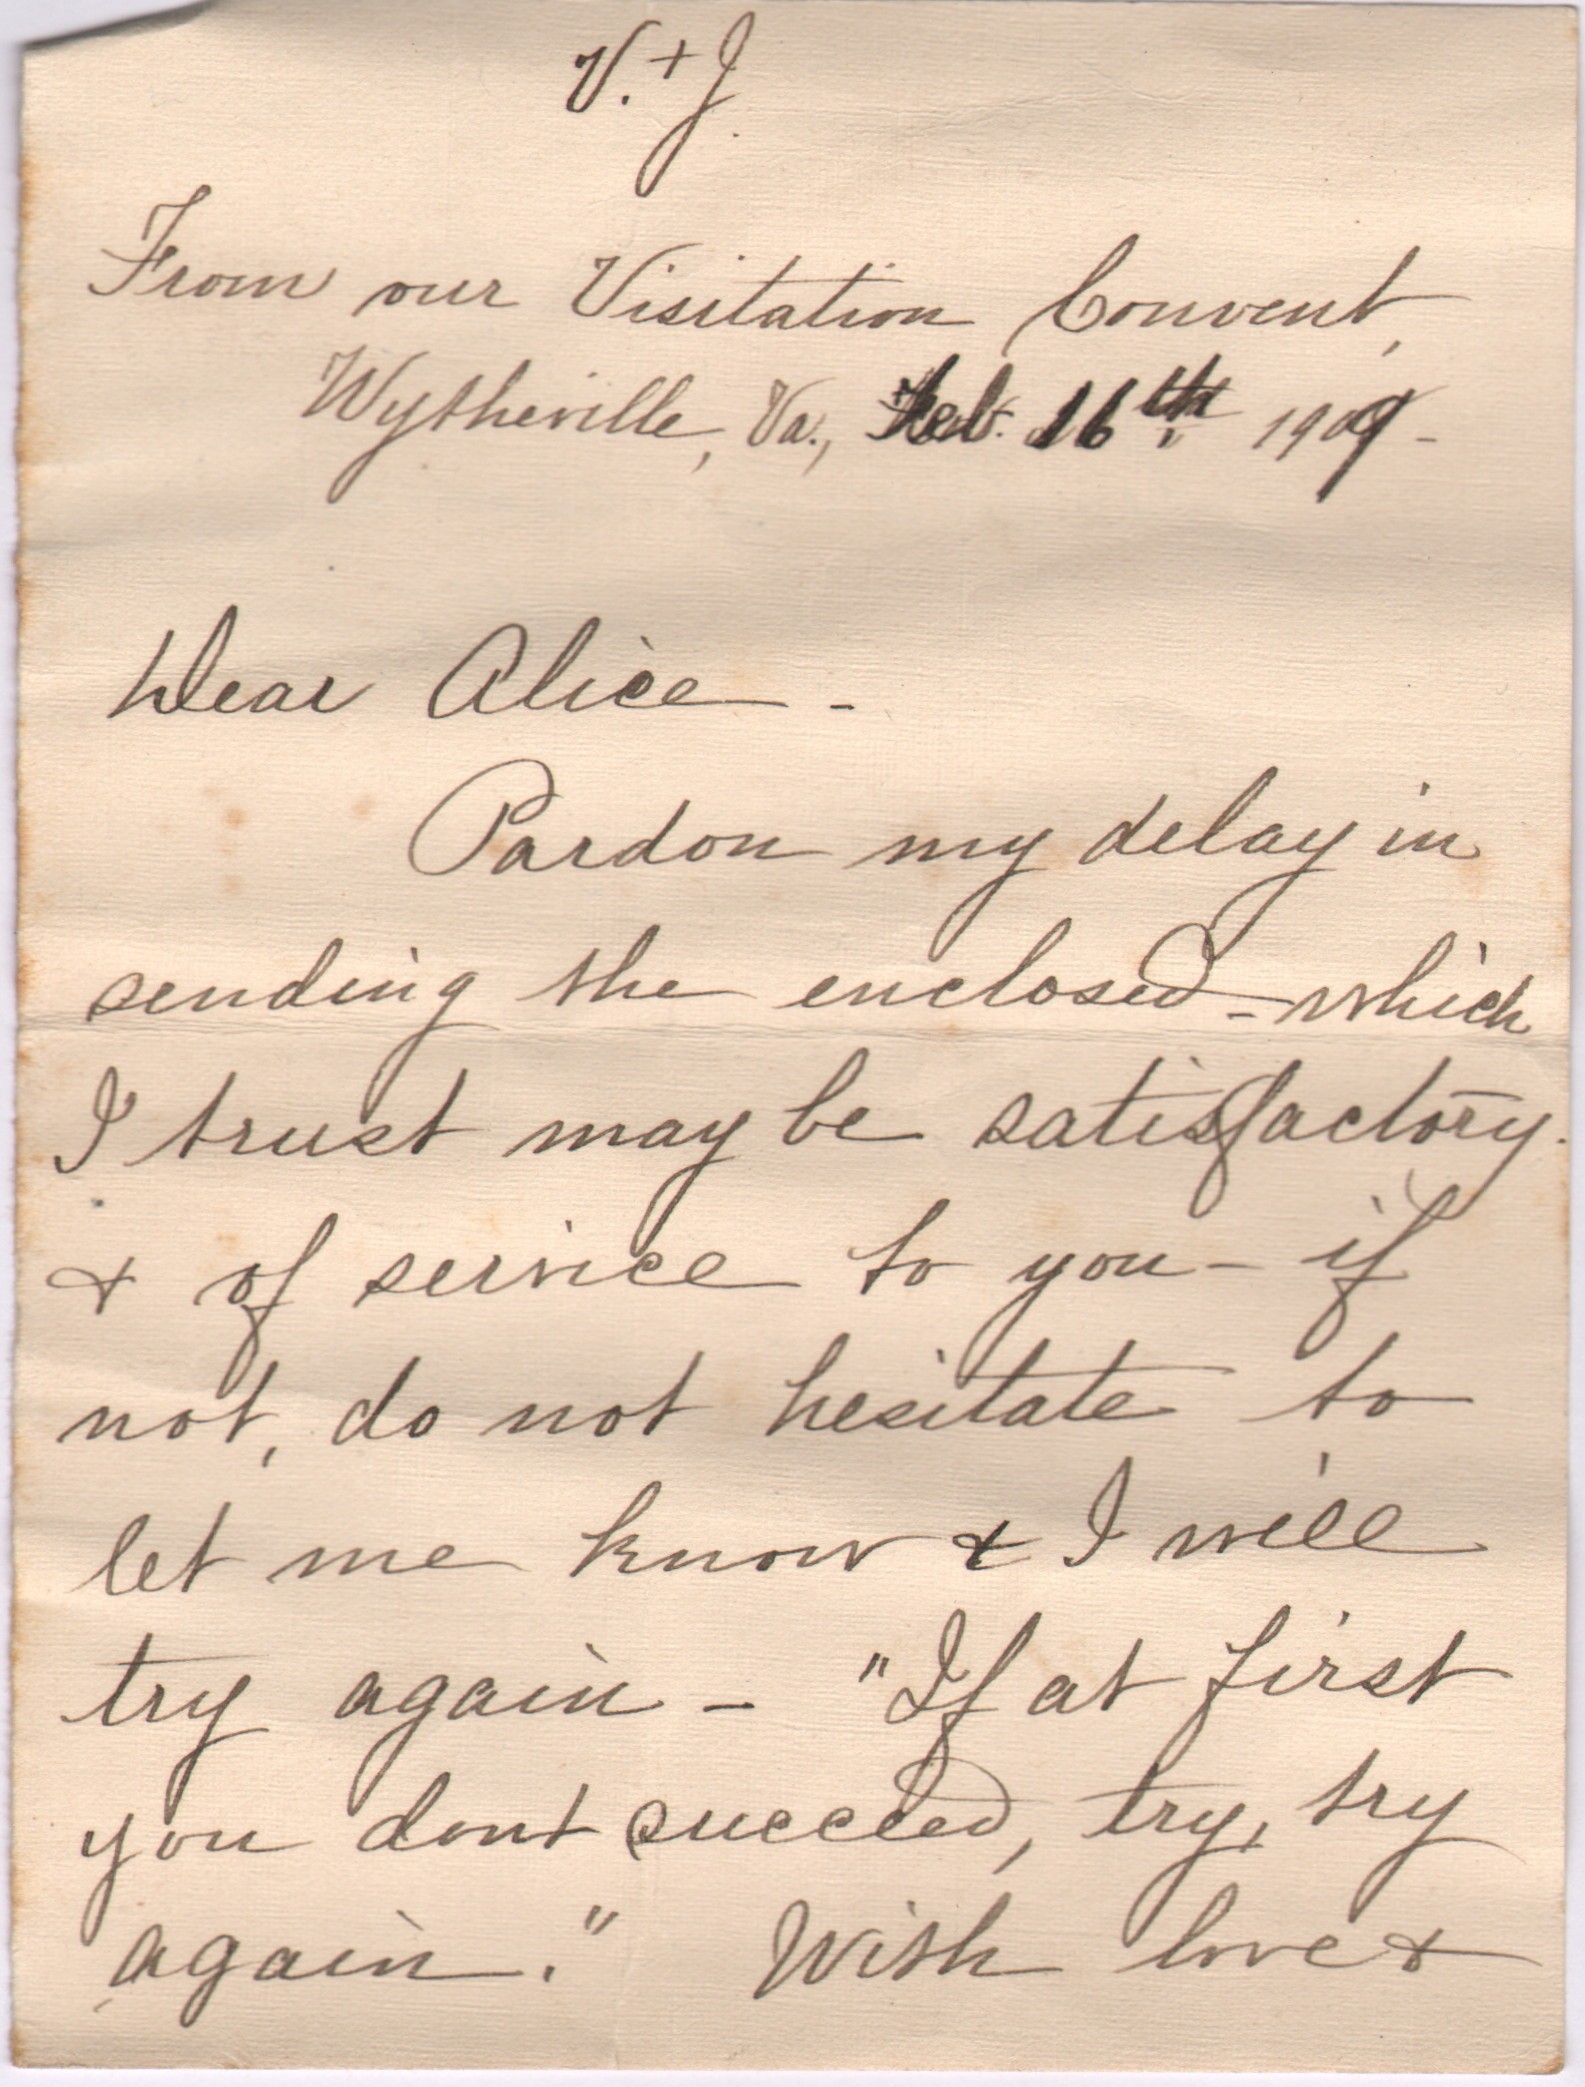 V. + J.
From our Visitation Convent,
Wytheville, Va., Feb. 16th 1909 -
Dear Alice -
Pardon my delay in
sending the enclosed - which
I trust may be satisfactory.
+ of service to you - if
not, do not hesitate to
let me know + I will
try again - "If at first
you dont succeed, try, try
again." With love +